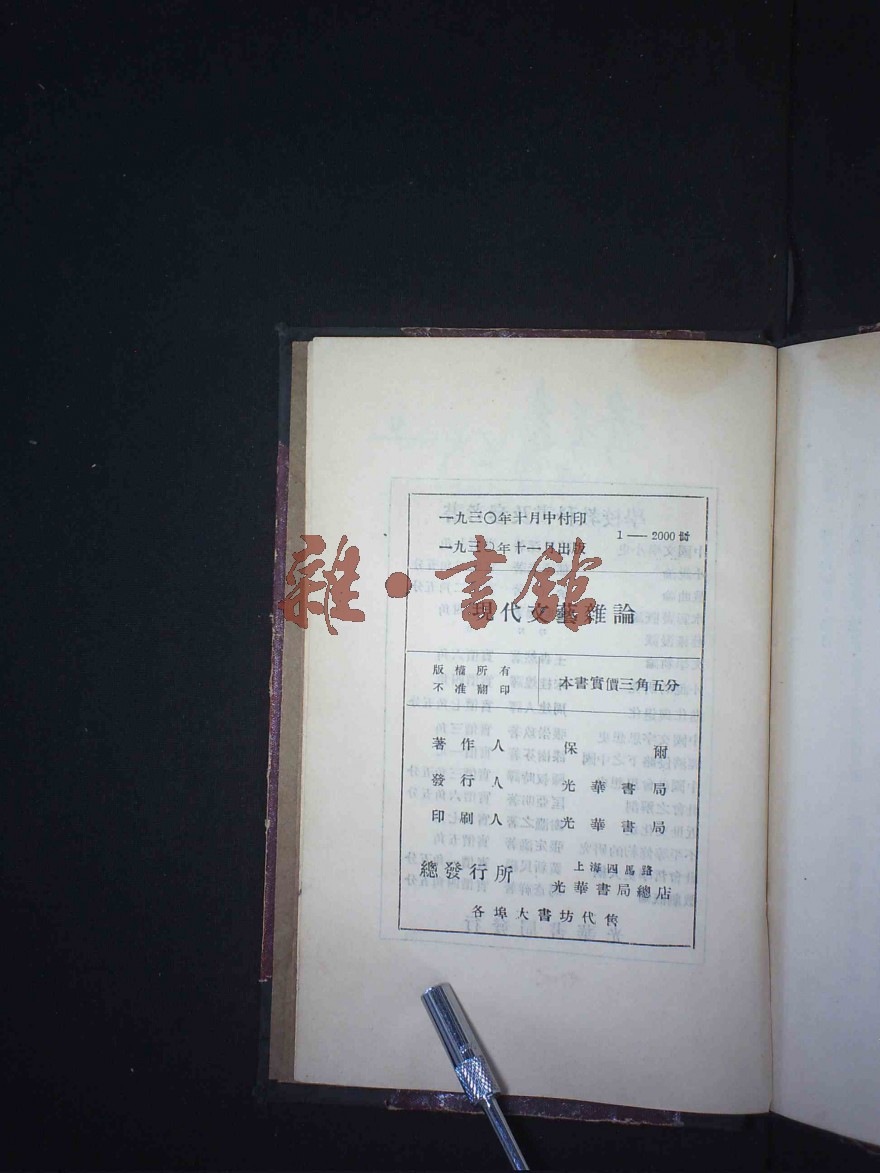 一九三〇年十月中村印
一九三〇年十一月出版
1——2000冊
雜·書館
現代文藝雜論
版權所有
不准翻印
本書實價三角五分
著作人 保爾
發行人 光華書局
印刷人 光華書局
總發行所
上海四馬路
光華書局總店
各埠大書坊代售